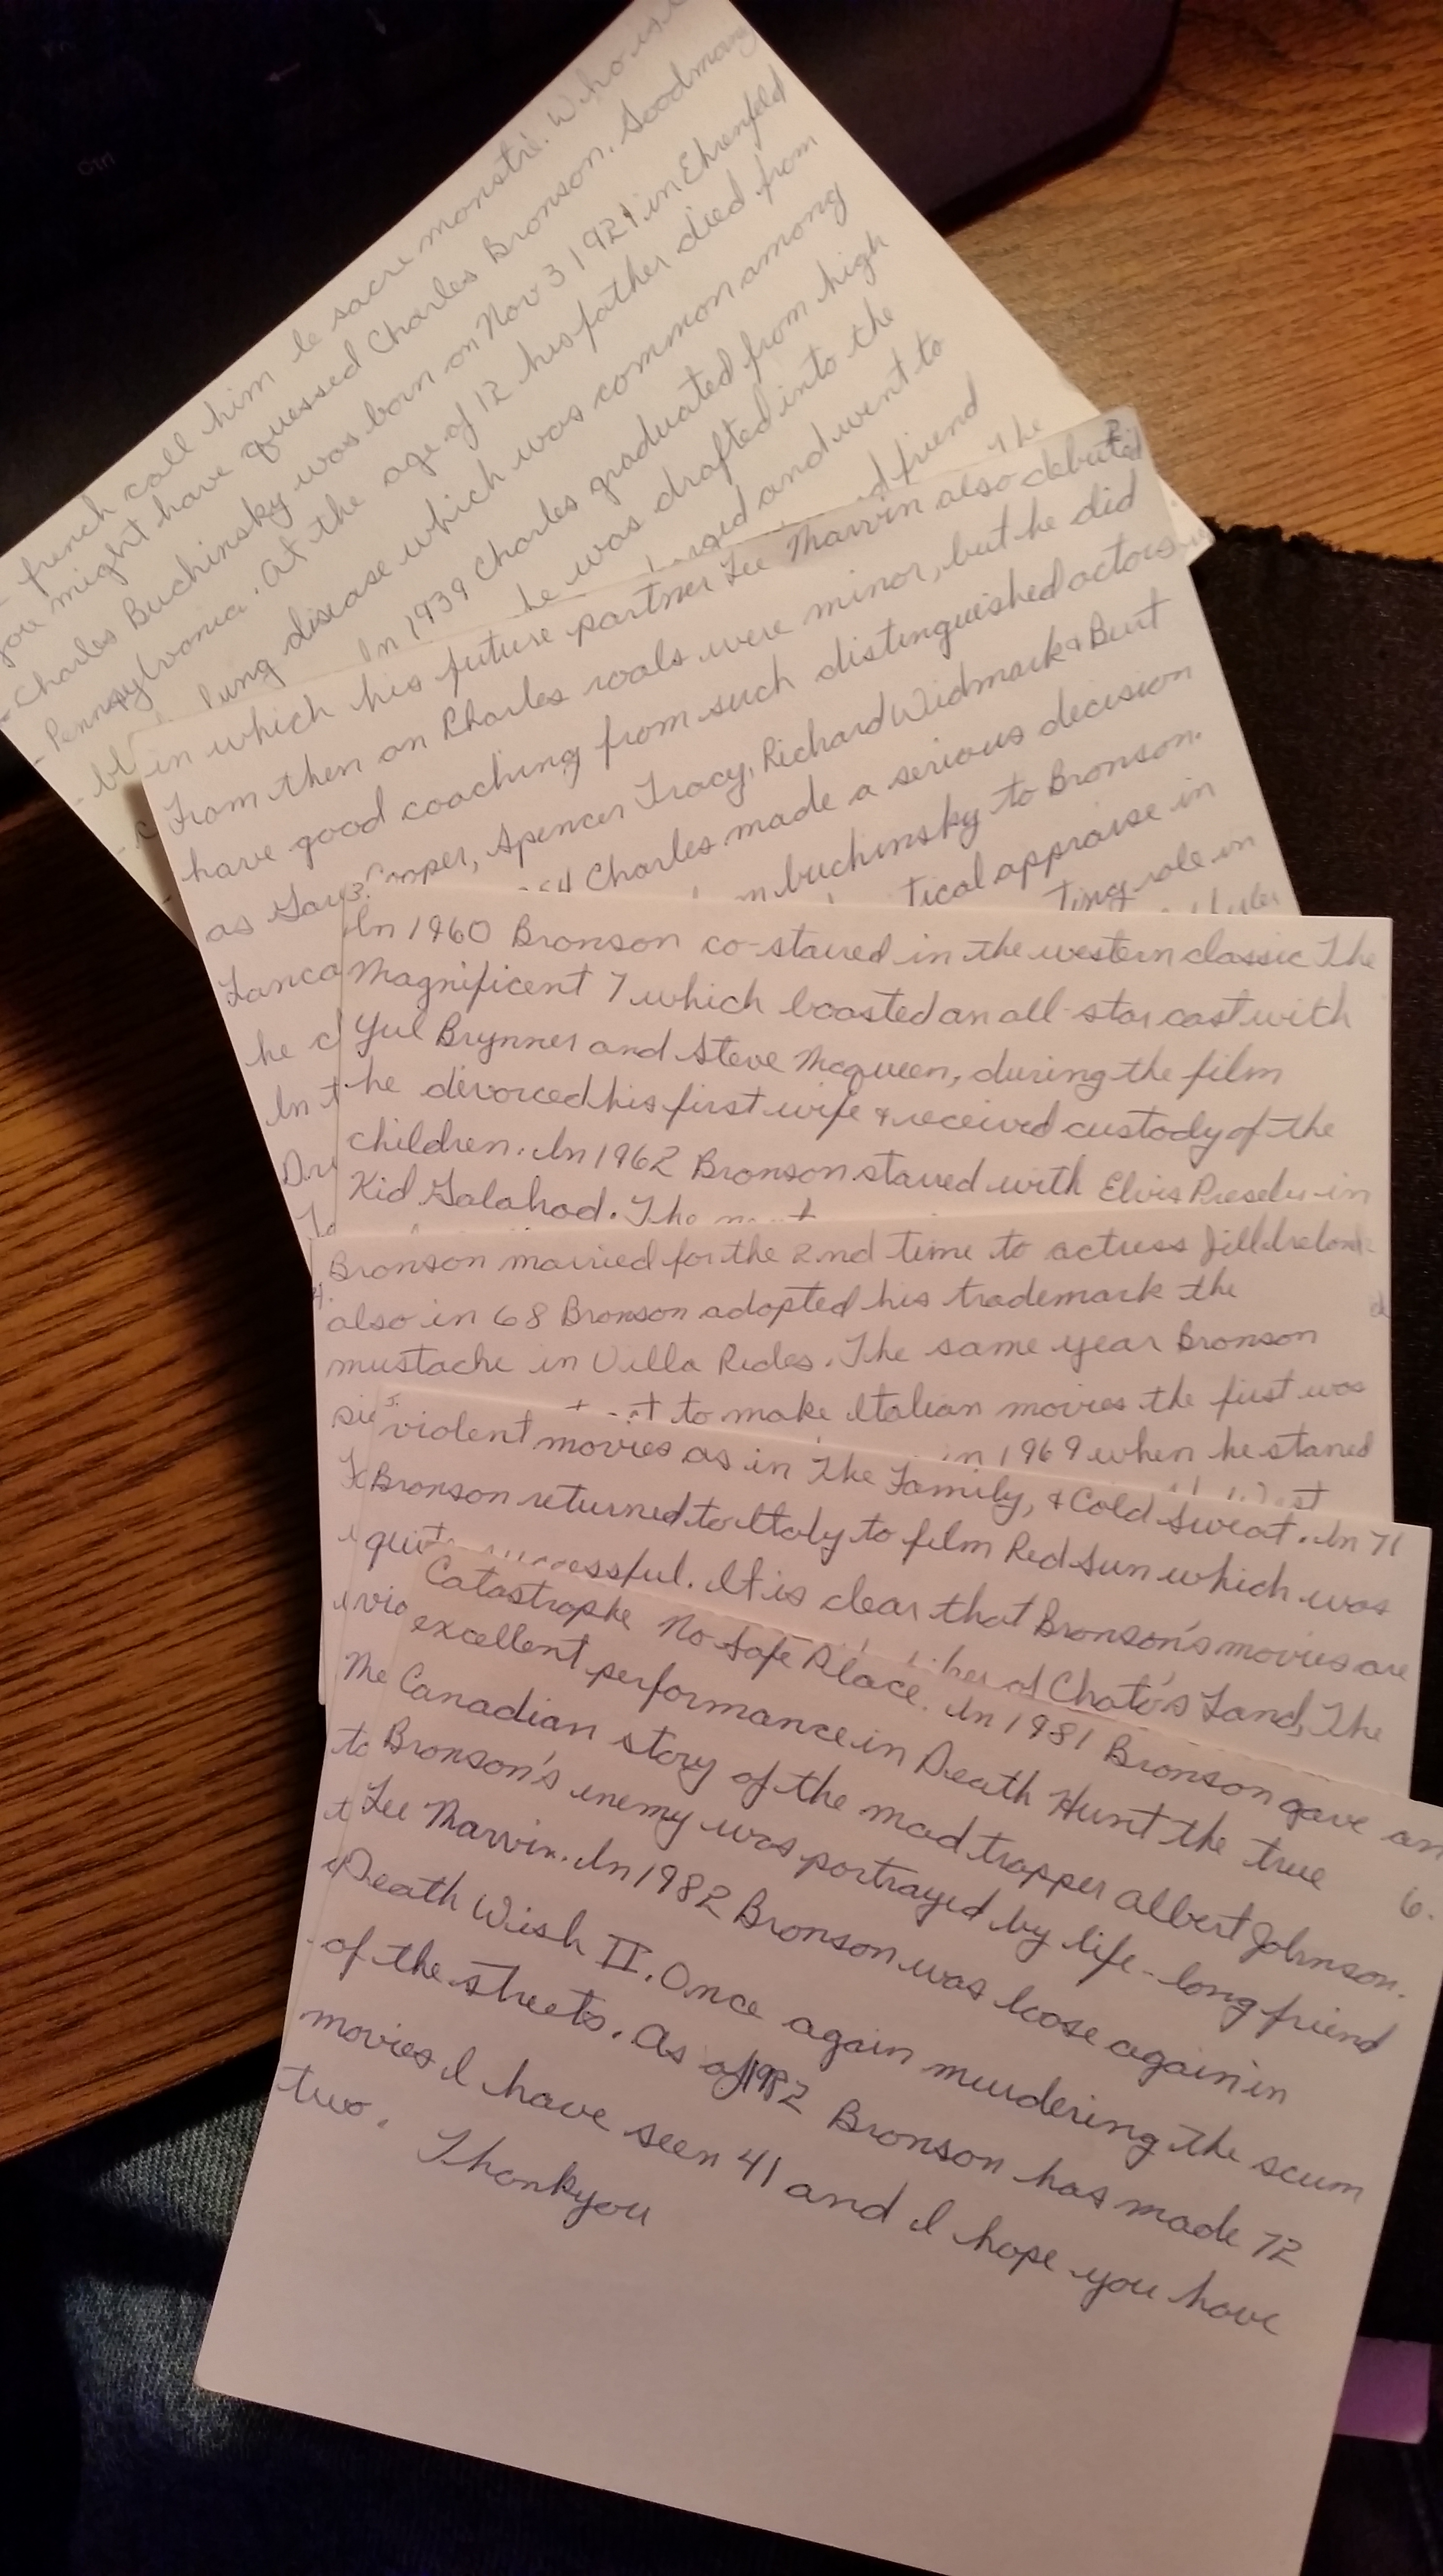 french call him le sacre monstré. Who is
you might have guessed Charles Bronson. Goodmorning
- Charles Buchinsky was born on Nov 3 1921 in Ehrenfeld
- Pennsylvania. At the age of 12 his father died from
lung disease which was common among
In 1939 Charles graduated from high
he was drafted into the
and went to
friend
The
2.
in which his future partner Lee Marvin also debuted
From then on Charles roals were minor, but he did
have good coaching from such distinguished actors
as Gary Cooper, Spencer Tracy, Richard Widmark & Burt
Charles made a serious decision
he buchinsky to Bronson.
appraise in
role in
3.
In 1960 Bronson co-starred in the western classic The
Magnificent 7 which boasted an all-star cast with
Yul Brynner and Steve Mcqueen, during the film
he devorced his first wife & received custody of the
children. In 1962 Bronson starred with Elvis Presely in
Kid Galahad. The
4.
Bronson married for the 2nd time to actress Jill Ireland
also in 68 Bronson adopted his trademark the
mustache in Villa Rides. The same year Bronson
to make Italian movies the first was
in 1969 when he starred
5.
violent movies as in The Family, & Cold Sweat. In 71
Bronson returned to Italy to film Red Sun which was
quite successful. It is clear that Bronson's movies are
of Chato's Land, The
6.
Catastrophe No Safe Place. In 1981 Bronson gave an
excellent performance in Death Hunt the true
Canadian story of the mad trapper Albert Johnson.
Bronson's enemy was portrayed by life-long friend
Lee Marvin. In 1982 Bronson was loose again in
Death Wish II. Once again murdering the scum
of the streets. As of 1982 Bronson has made 72
movies I have seen 41 and I hope you have
two. Thankyou
Ctrl